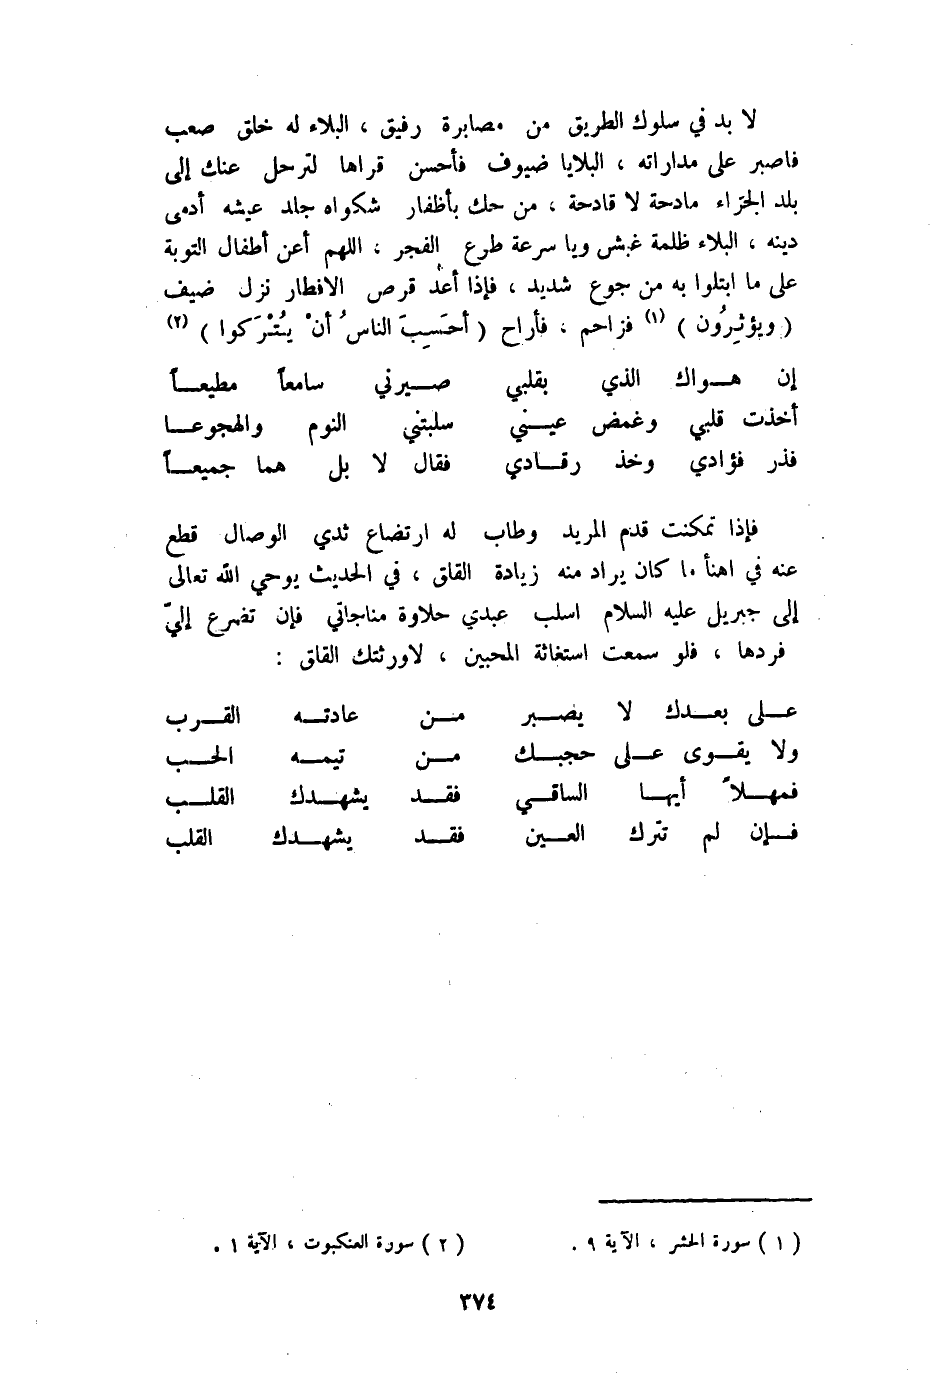 لا بد في سلوك الطريق من مصابرة رفيق ، البلاء له خلق صعب
فاصبر على مداراته ، البلايا ضيوف فأحسن قراها لترحل عنك إلى
بلد الجزاء مادحة لا قادحة ، من حك بأظفار شكواه جلد عيشه أدمى
دينه ، البلاء ظلمة غبش ويا سرعة طرع الفجر ، اللهم أعن أطفال التوبة
على ما ابتلوا به من جوع شديد ، فإذا أعد قرص الافطار نزل ضيف
( ويؤثِرُون ) (١) فزاحم ، فأراح ( أحَسِبَ الناسُ أنْ يُتْرَكوا ) (٢)
إن هواك الذي بقلبي صيرني سامعاً مطيعاً
أخذت قلبي وغمض عيني سلبتني النوم والهجوعا
فذر فؤادي وخذ رقادي فقال لا بل هما جميعاً
فإذا تمكنت قدم المريد وطاب له ارتضاع ثدي الوصال قطع
عنه في اهنأ ما كان يراد منه زيادة القلق ، في الحديث يوحي الله تعالى
إلى جبريل عليه السلام اسلب عبدي حلاوة مناجاتي فإن تضرع إليّ
فردها ، فلو سمعت استغاثة المحبين ، لاورثتك القلق :
على بعدك لا يصبر من عادته القرب
ولا يقوى على حجبك من تيمه الحب
فمهلاً أيها الساقي فقد يشهدك القلب
فإن لم ترك العين فقد يشهدك القلب
( ١ ) سورة الحشر ، الآية ٩ .
( ٢ ) سورة العنكبوت ، الآية ١ .
٣٧٤